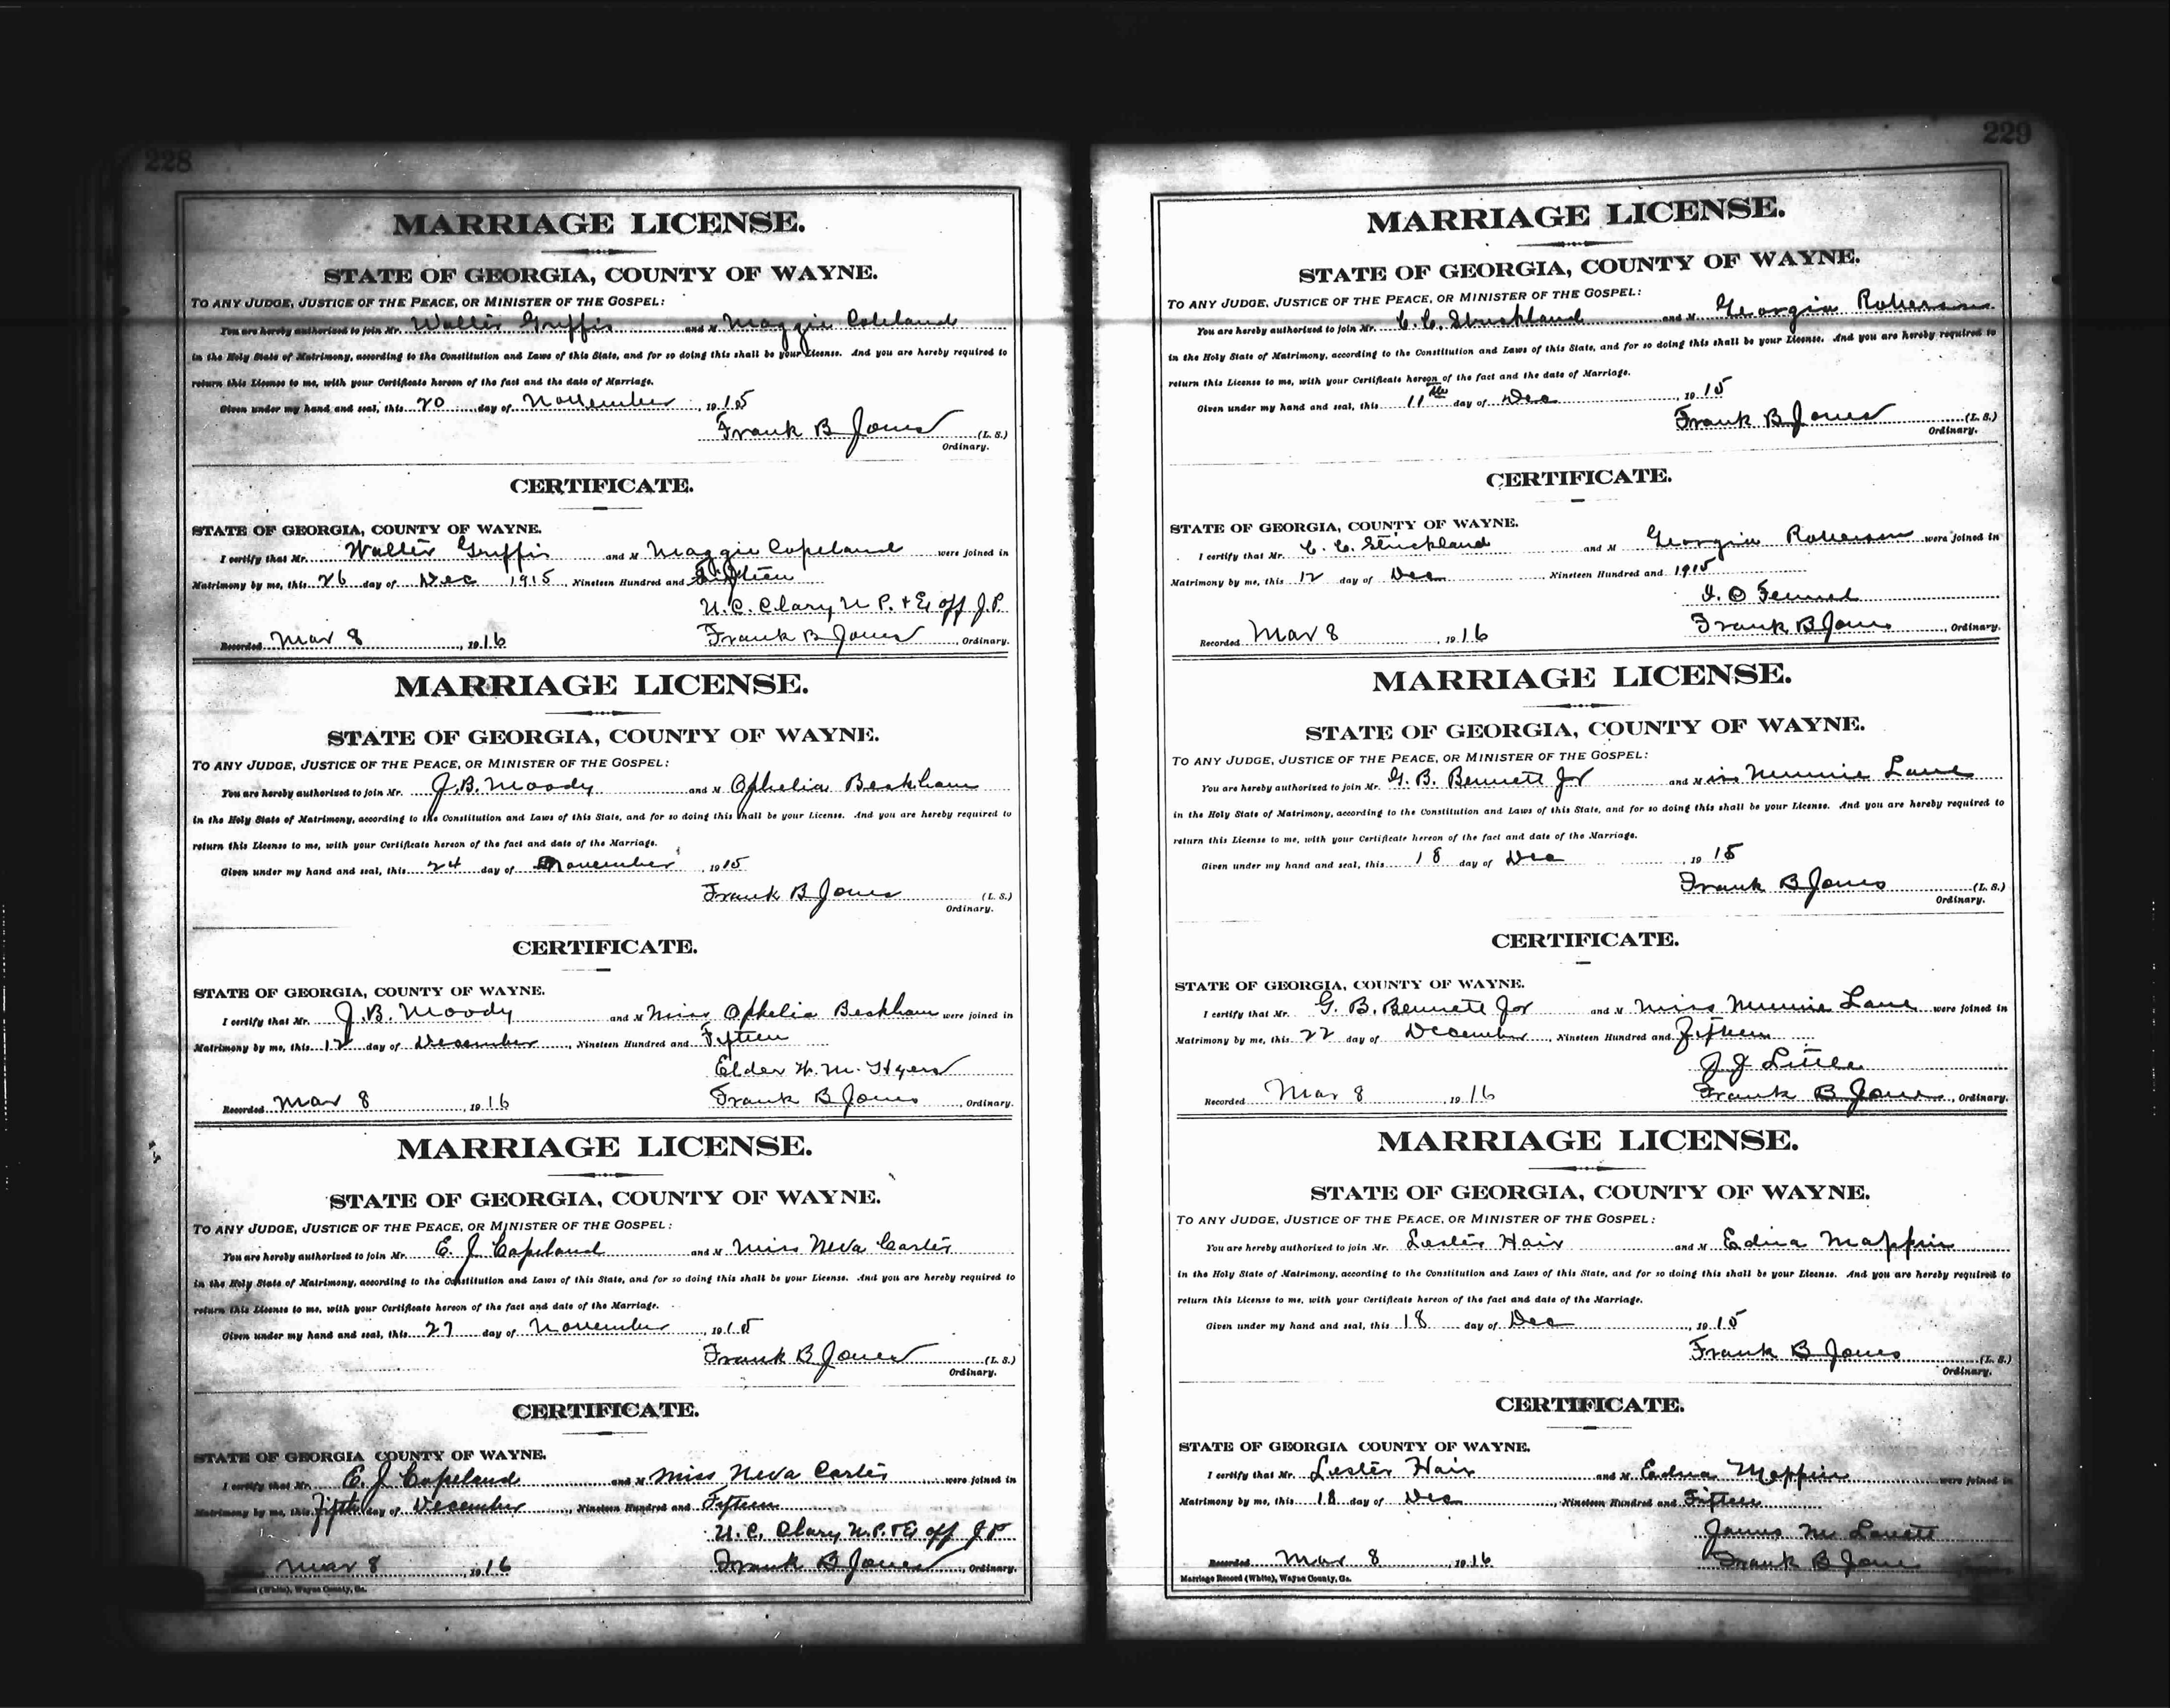 228
MARRIAGE LICENSE.
STATE OF GEORGIA, COUNTY OF WAYNE.
TO ANY JUDGE, JUSTICE OF THE PEACE, OR MINISTER OF THE GOSPEL:
You are hereby authorized to join Mr. Walter Griffis and M Maggie Copeland
in the Holy State of Matrimony, according to the Constitution and Laws of this State, and for so doing this shall be your License. And you are hereby required to
return this License to me, with your Certificate hereon of the fact and the date of Marriage.
Given under my hand and seal, this 20 day of November, 1915
Frank B Jones (L. S.)
Ordinary.
CERTIFICATE.
STATE OF GEORGIA, COUNTY OF WAYNE.
I certify that Mr. Walter Griffis and M Maggie Copeland were joined in
Matrimony by me, this 26 day of Dec 1915, Nineteen Hundred and Fifteen
U. C. Clary N P. + Ex off J.P.
Recorded Mar 8, 1916 Frank B Jones, Ordinary.
MARRIAGE LICENSE.
STATE OF GEORGIA, COUNTY OF WAYNE.
TO ANY JUDGE, JUSTICE OF THE PEACE, OR MINISTER OF THE GOSPEL:
You are hereby authorized to join Mr. J.B. Moody and M Ophelia Beckham
in the Holy State of Matrimony, according to the Constitution and Laws of this State, and for so doing this shall be your License. And you are hereby required to
return this License to me, with your Certificate hereon of the fact and date of the Marriage.
Given under my hand and seal, this 24 day of November, 1915
Frank B Jones (L. S.)
Ordinary.
CERTIFICATE.
STATE OF GEORGIA, COUNTY OF WAYNE.
I certify that Mr. J.B. Moody and M Miss Ophelia Beckham were joined in
Matrimony by me, this 12 day of December, Nineteen Hundred and Fifteen
Elder W. M. Hyers
Recorded Mar 8, 1916 Frank B Jones, Ordinary.
MARRIAGE LICENSE.
STATE OF GEORGIA, COUNTY OF WAYNE.
TO ANY JUDGE, JUSTICE OF THE PEACE, OR MINISTER OF THE GOSPEL:
You are hereby authorized to join Mr. E. J. Copeland and M Miss Neva Carter
in the Holy State of Matrimony, according to the Constitution and Laws of this State, and for so doing this shall be your License. And you are hereby required to
return this License to me, with your Certificate hereon of the fact and date of the Marriage.
Given under my hand and seal, this 27 day of November, 1915
Frank B Jones (L. S.)
Ordinary.
CERTIFICATE.
STATE OF GEORGIA COUNTY OF WAYNE.
I certify that Mr. E. J. Copeland and M Miss Neva Carter were joined in
Matrimony by me, this Fifth day of December, Nineteen Hundred and Fifteen
U. C. Clary N.P. + Ex off J P
Mar 8, 1916 Frank B Jones, Ordinary.
(White), Wayne County, Ga.
229
MARRIAGE LICENSE.
STATE OF GEORGIA, COUNTY OF WAYNE.
TO ANY JUDGE, JUSTICE OF THE PEACE, OR MINISTER OF THE GOSPEL:
You are hereby authorized to join Mr. C. C. Strickland and M Georgia Roberson
in the Holy State of Matrimony, according to the Constitution and Laws of this State, and for so doing this shall be your License. And you are hereby required to
return this License to me, with your Certificate hereon of the fact and the date of Marriage.
Given under my hand and seal, this 11th day of Dec, 1915
Frank B Jones (L. S.)
Ordinary.
CERTIFICATE.
STATE OF GEORGIA, COUNTY OF WAYNE.
I certify that Mr. C. C. Strickland and M Georgia Roberson were joined in
Matrimony by me, this 12 day of Dec, Nineteen Hundred and 1915
Recorded Mar 8, 1916 Frank B Jones, Ordinary.
MARRIAGE LICENSE.
STATE OF GEORGIA, COUNTY OF WAYNE.
TO ANY JUDGE, JUSTICE OF THE PEACE, OR MINISTER OF THE GOSPEL:
You are hereby authorized to join Mr. G. B. Bennett Jr and Miss Minnie Lane
in the Holy State of Matrimony, according to the Constitution and Laws of this State, and for so doing this shall be your License. And you are hereby required to
return this License to me, with your Certificate hereon of the fact and date of the Marriage.
Given under my hand and seal, this 18 day of Dec, 1915
Frank B Jones (L. S.)
Ordinary.
CERTIFICATE.
STATE OF GEORGIA, COUNTY OF WAYNE.
I certify that Mr. G. B. Bennett Jr and M Miss Minnie Lane were joined in
Matrimony by me, this 22 day of December, Nineteen Hundred and Fifteen
J J Little
Recorded Mar 8, 1916 Frank B Jones, Ordinary.
MARRIAGE LICENSE.
STATE OF GEORGIA, COUNTY OF WAYNE.
TO ANY JUDGE, JUSTICE OF THE PEACE, OR MINISTER OF THE GOSPEL:
You are hereby authorized to join Mr. Lester Hair and M Edna Mappin
in the Holy State of Matrimony, according to the Constitution and Laws of this State, and for so doing this shall be your License. And you are hereby required to
return this License to me, with your Certificate hereon of the fact and date of the Marriage.
Given under my hand and seal, this 18 day of Dec, 1915
Frank B Jones (L. S.)
Ordinary.
CERTIFICATE.
STATE OF GEORGIA COUNTY OF WAYNE.
I certify that Mr. Lester Hair and M Edna Mappin were joined in
Matrimony by me, this 18 day of Dec, Nineteen Hundred and Fifteen
James M Lovett
Recorded Mar 8, 1916 Frank B Jones
Marriage Record (White), Wayne County, Ga.